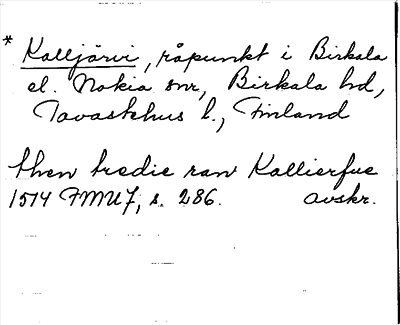 * Kalljärvi, råpunkt i Birkala
el. Nokia snr, Birkala hd,
Tavastehus l., Finland
then tredie raw Kallierfue
1514 FMU 7, s. 286. avskr.